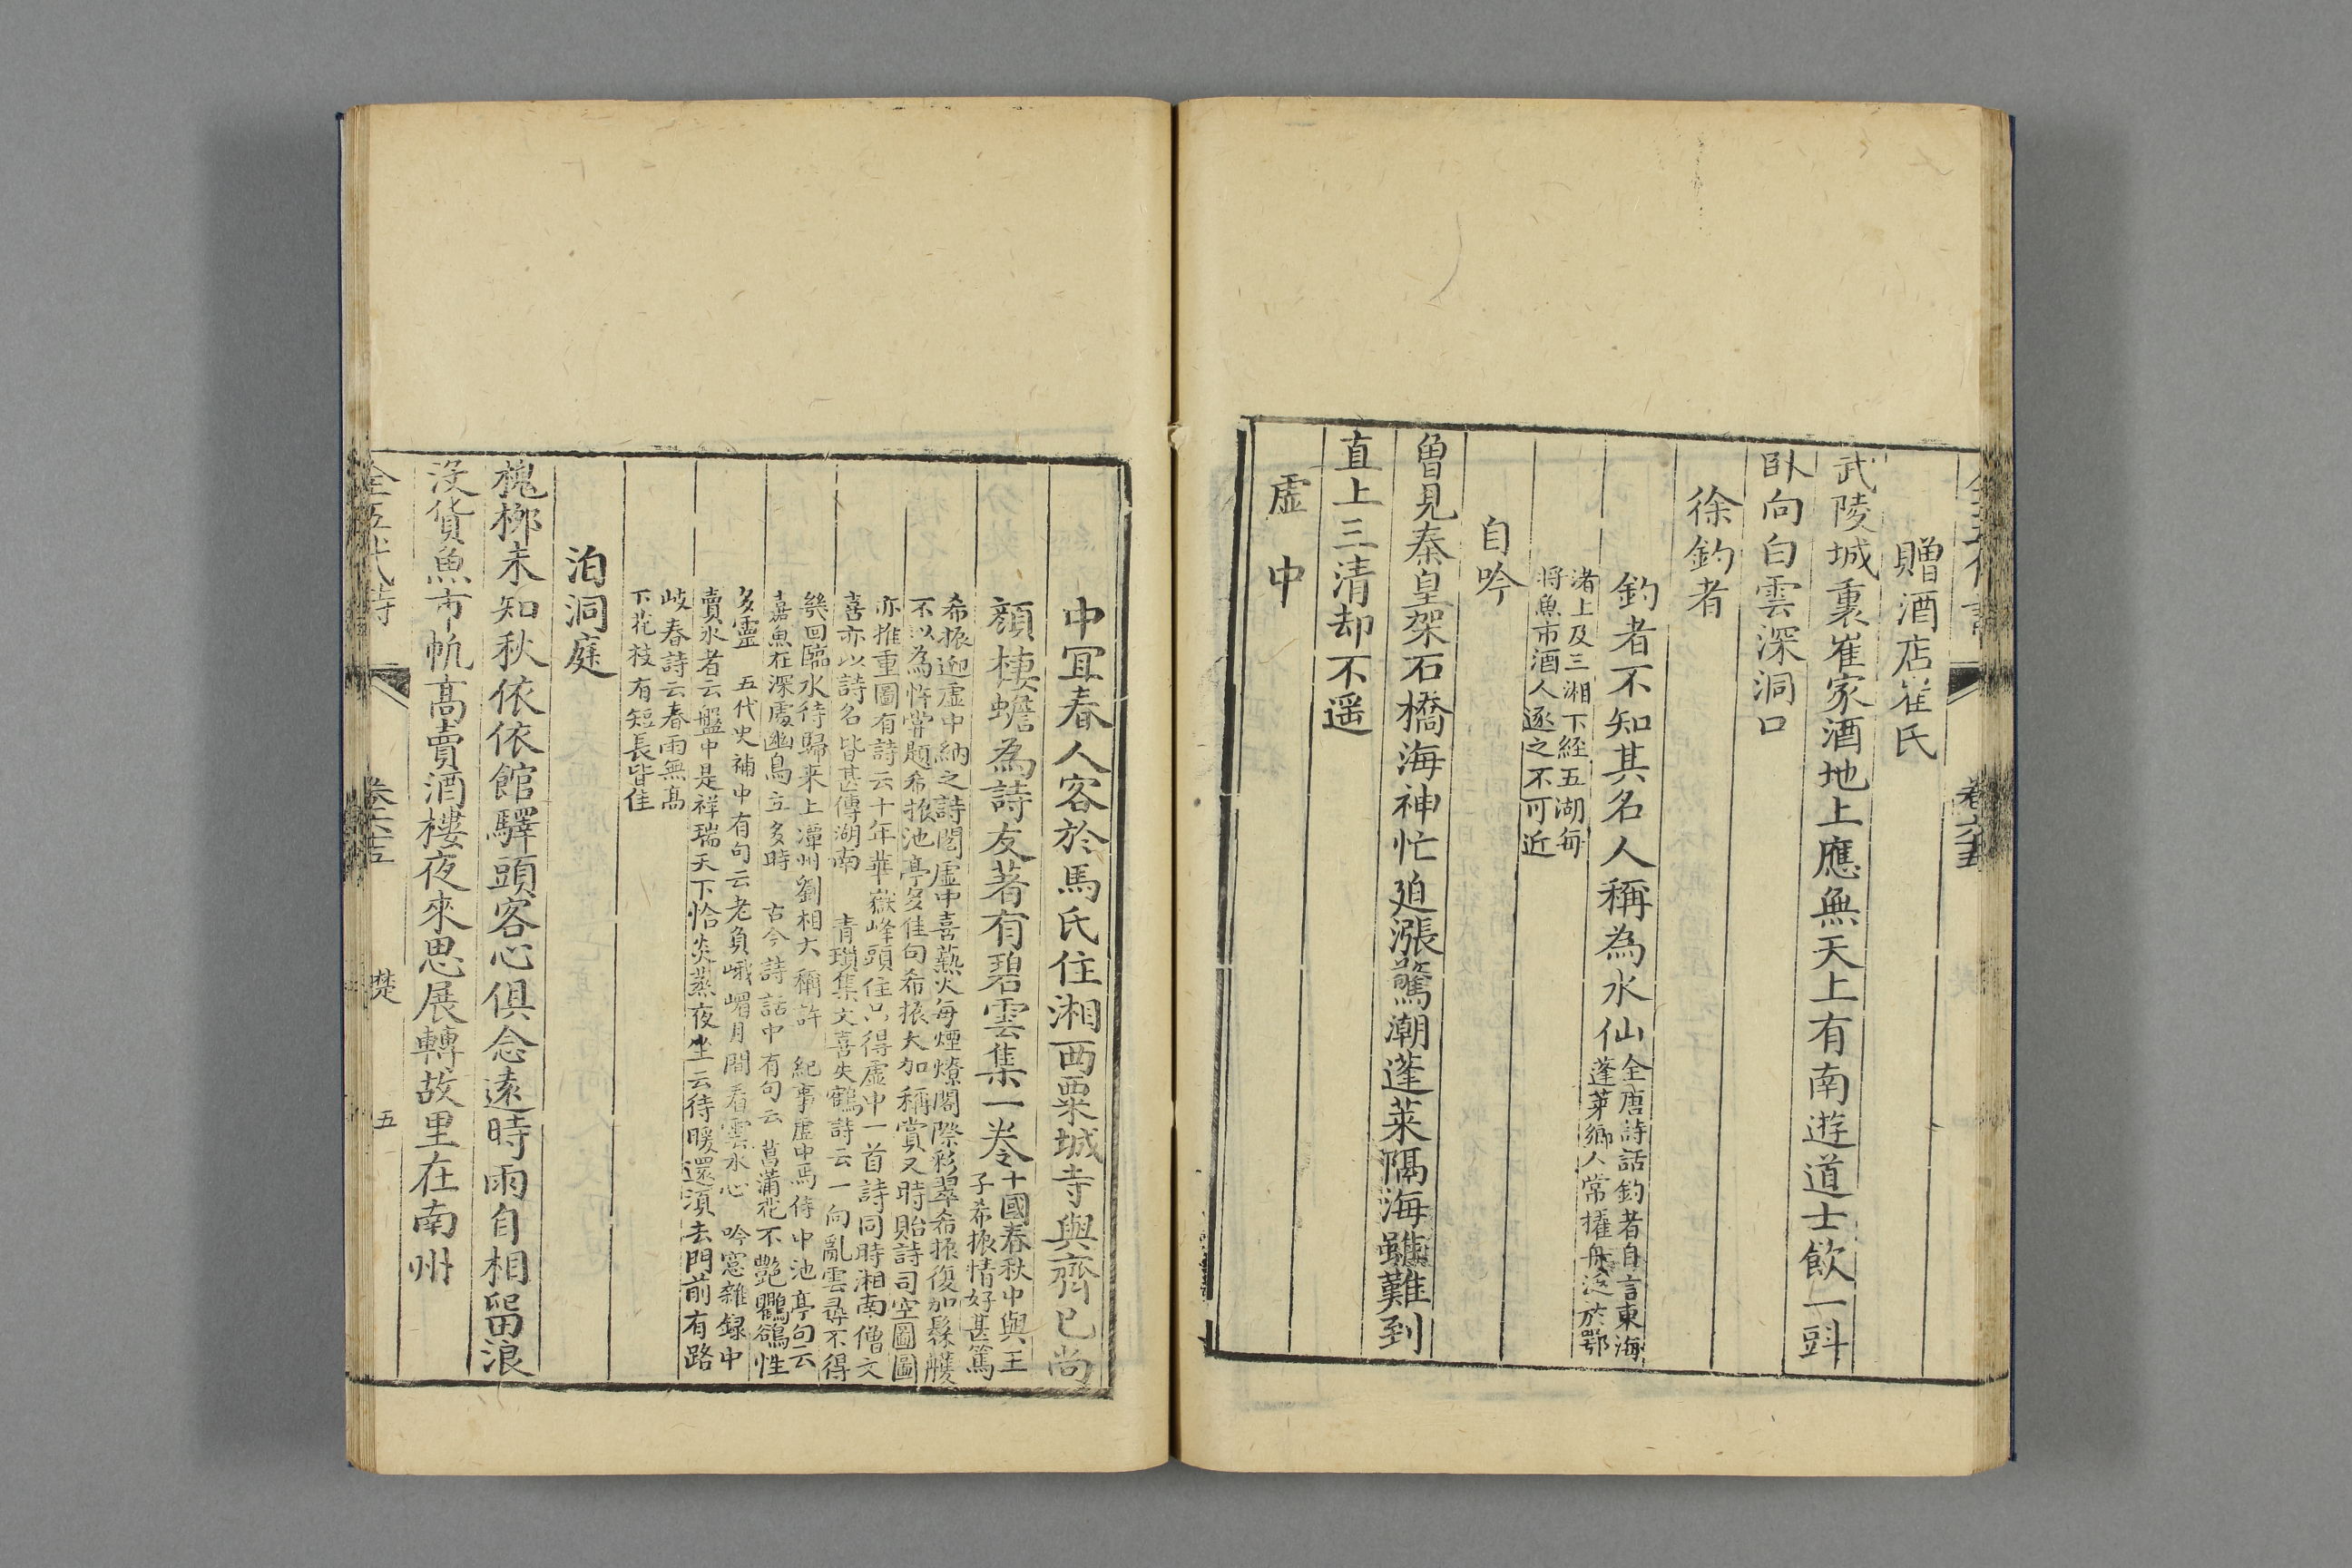 贈酒店崔氏
武陵城裏崔家酒地上應無天上有南遊道士飲一㪷
臥向白雲深洞口
徐釣者
釣者不知其名人稱為水仙
全唐詩話釣者自言東海
蓬萊鄉人常擢舟泛於鄂
渚上及三湘下經五湖每
將魚市酒人逐之不可近
自吟
曾見秦皇架石橋海神忙迫漲驚潮蓬萊隔海雖難到
直上三清却不遥
虛中
中宜春人客於馬氏住湘西粟城寺與齊已尚
顏棲蟾為詩友著有碧雲集一卷
十國春秋中與王
子希振情好甚篤
希振迎虛中納之詩閣虛中喜爇火每煙燎閣際彩翠希振復加髹雘
不以為忤嘗題希振池亭多佳句希振大加稱賞又時貽詩司空圖圖
亦推重圖有詩云十年華嶽峰頭住只得虛中一首詩同時湘南僧文
喜亦以詩名皆甚傳湖南 青瑣集文喜失鶴詩云一向亂雲尋不得
幾回臨水待歸來上潭州劉相大稱許 紀事虛中馬侍中池亭句云
嘉魚在深處幽鳥立多時 古今詩話中有句云菖蒲花不艷鸜鵒性
多靈 五代史補中有句云老負峨嵋月閒看雲水心 吟窓雜録中
賣氷者云盤中是祥瑞天下恰炎蒸夜坐云待暖還須去門前有路
岐春詩云春雨無高
下花枝有短長皆佳
泊洞庭
槐栁未知秋依依館驛頭客心俱念遠時雨自相留浪
沒貨魚市帆高賣酒樓夜來思展轉故里在南州
全五代詩 卷六十五 楚 五